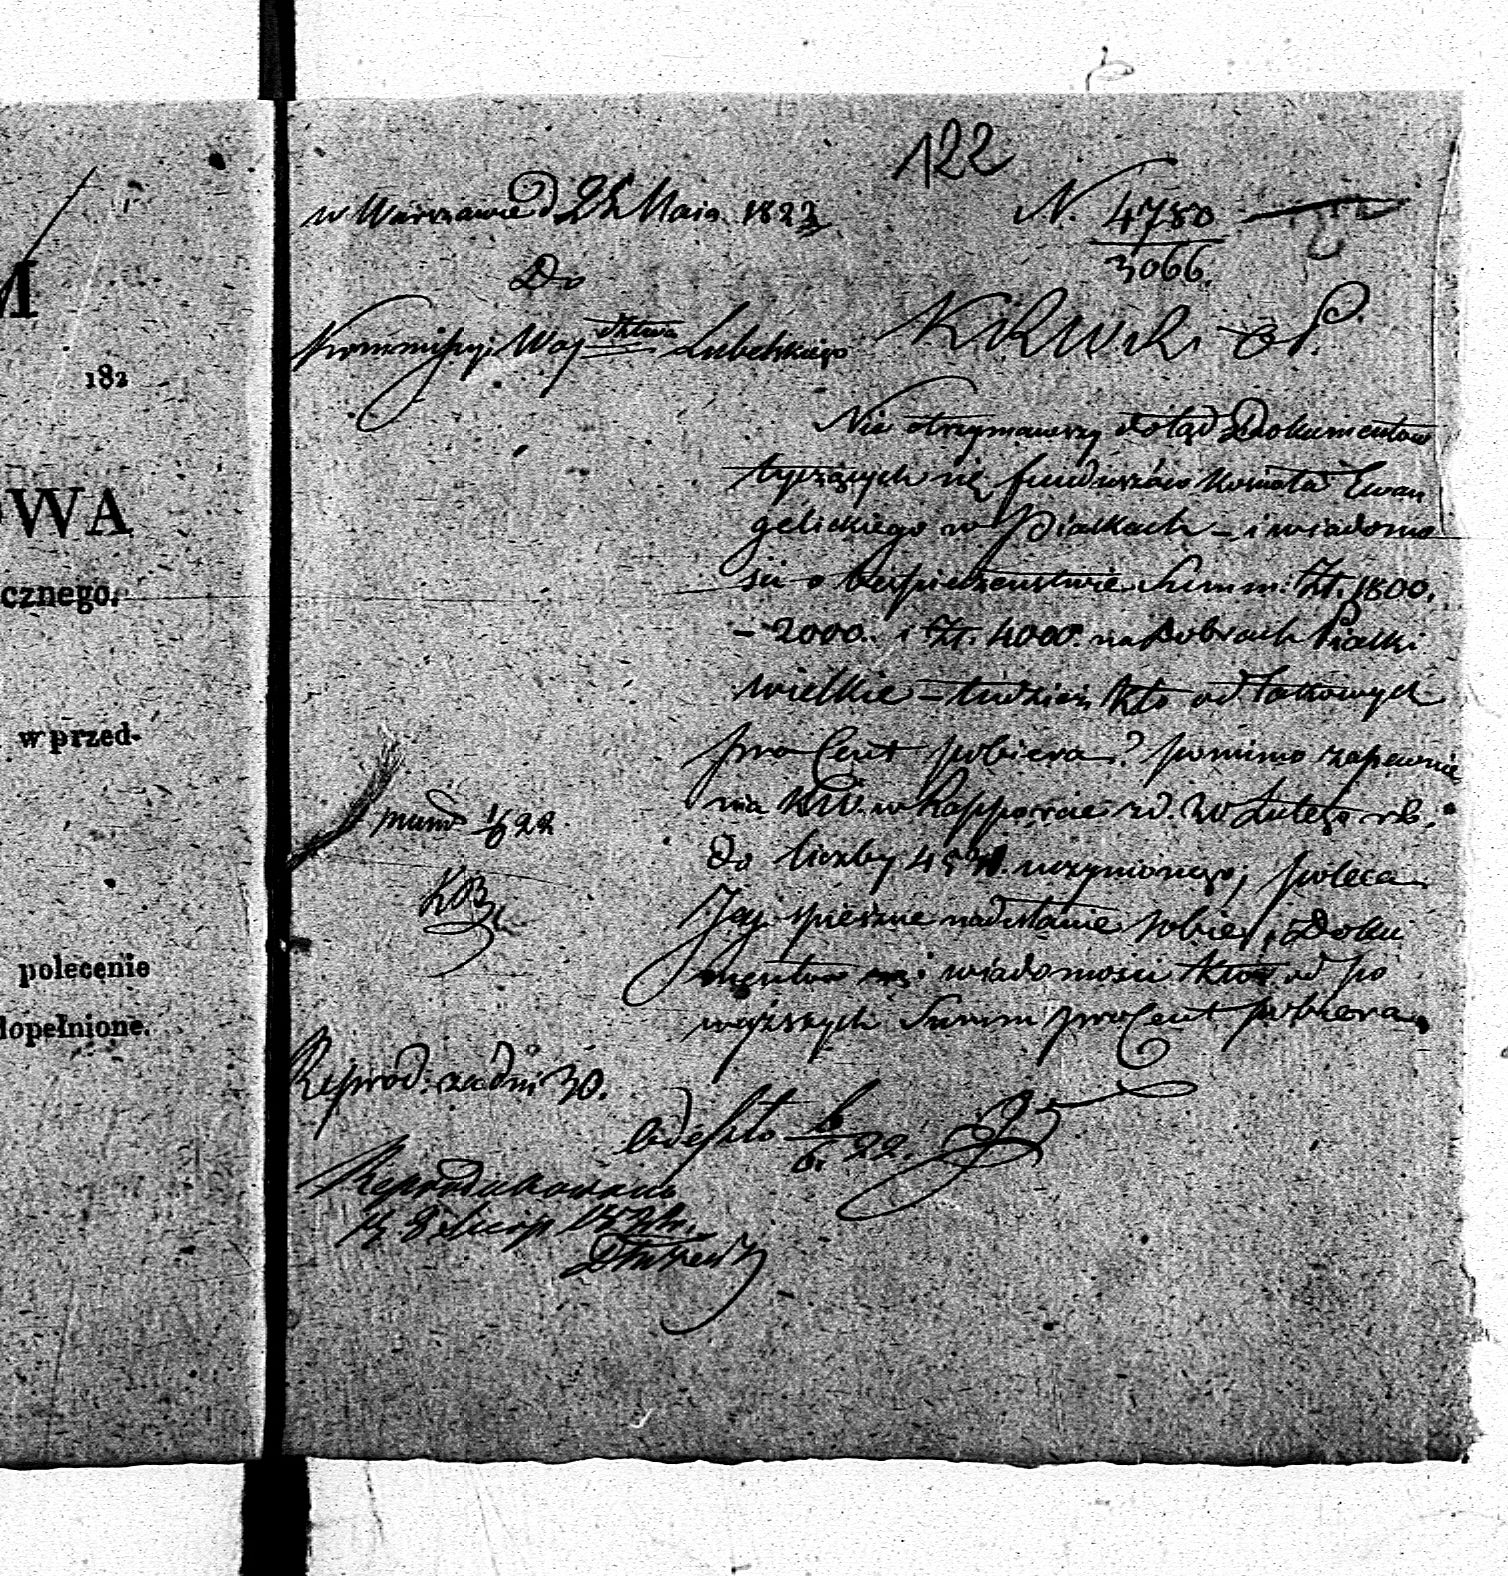 M
182
OWA
cznego.
w przed-
polecenie
dopełnione.
122
w Warszawie d 25 Maia 1822
N. 4780
3066.
Do
Kommissyi Wojdztwa Lubelskiego
KRWR i O P.
Nie otrzymawszy dotąd Dokumentow
tyczących się funduszów Kościoła Ewan
gelickiego w Piaskach – i wiadomo
ści o bespieczeństwie Summ: Zł. 1800.
– 2000. i Zł. 4000. na Dobrach Piaski
wielkie – tudzież kto od takowych
pro Cent pobiera? pomimo zapewnie
nia KW. w Rapporcie z d. 20 Lutego r b.
do liczby uczynionego, poleca
Jey spieszne nadesłanie sobie, Doku
mentow i wiadomości kto od po
wyższych Summ pro Cent pobiera.
mund 1/6 22
KB
Reprod: za dni 30.
Odeszło 6/6. 22.
Reprodukowano
d 8 Sierp